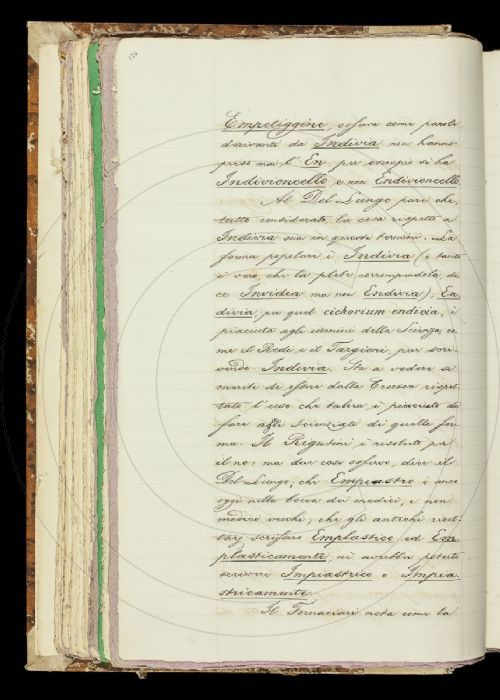 Empetiggine, osserva come parole
derivanti da Indivia non hanno
preso mai l'En, per esempio si ha
Indivioncello e non Endivioncello.
Al Del Lungo pare che,
tutto considerato, la cosa rispetto a
Indivia stia in questi termini. La
forma popolare è Indivia (e tanto
è vero che la plebe corrompendola di
ce Invidia ma non Endivia); En
divia, per quel cichorium endivia, è
piaciuta agli uomini della Scienza, co
me il Redi e il Targioni, pur scri
vendo Indivia. Sta a vedere se
meriti di essere dalla Crusca rispet
tato l'uso che talora è piaciuto di
fare agli Scienziati di quella for
ma. Il Rigutini è risoluto pel
el no: ma due cose osservo, dice il
Del Lungo; che Empiastro è anc
oggi nella bocca dei medici, e non
medici vecchi; che gli antichi ricet
tarj scrissero Emplastico ed Em
plasticamente, nè avrebber potuto
scrivere Impiastrico o Impia
stricamente.
Il Fornaciari nota come la